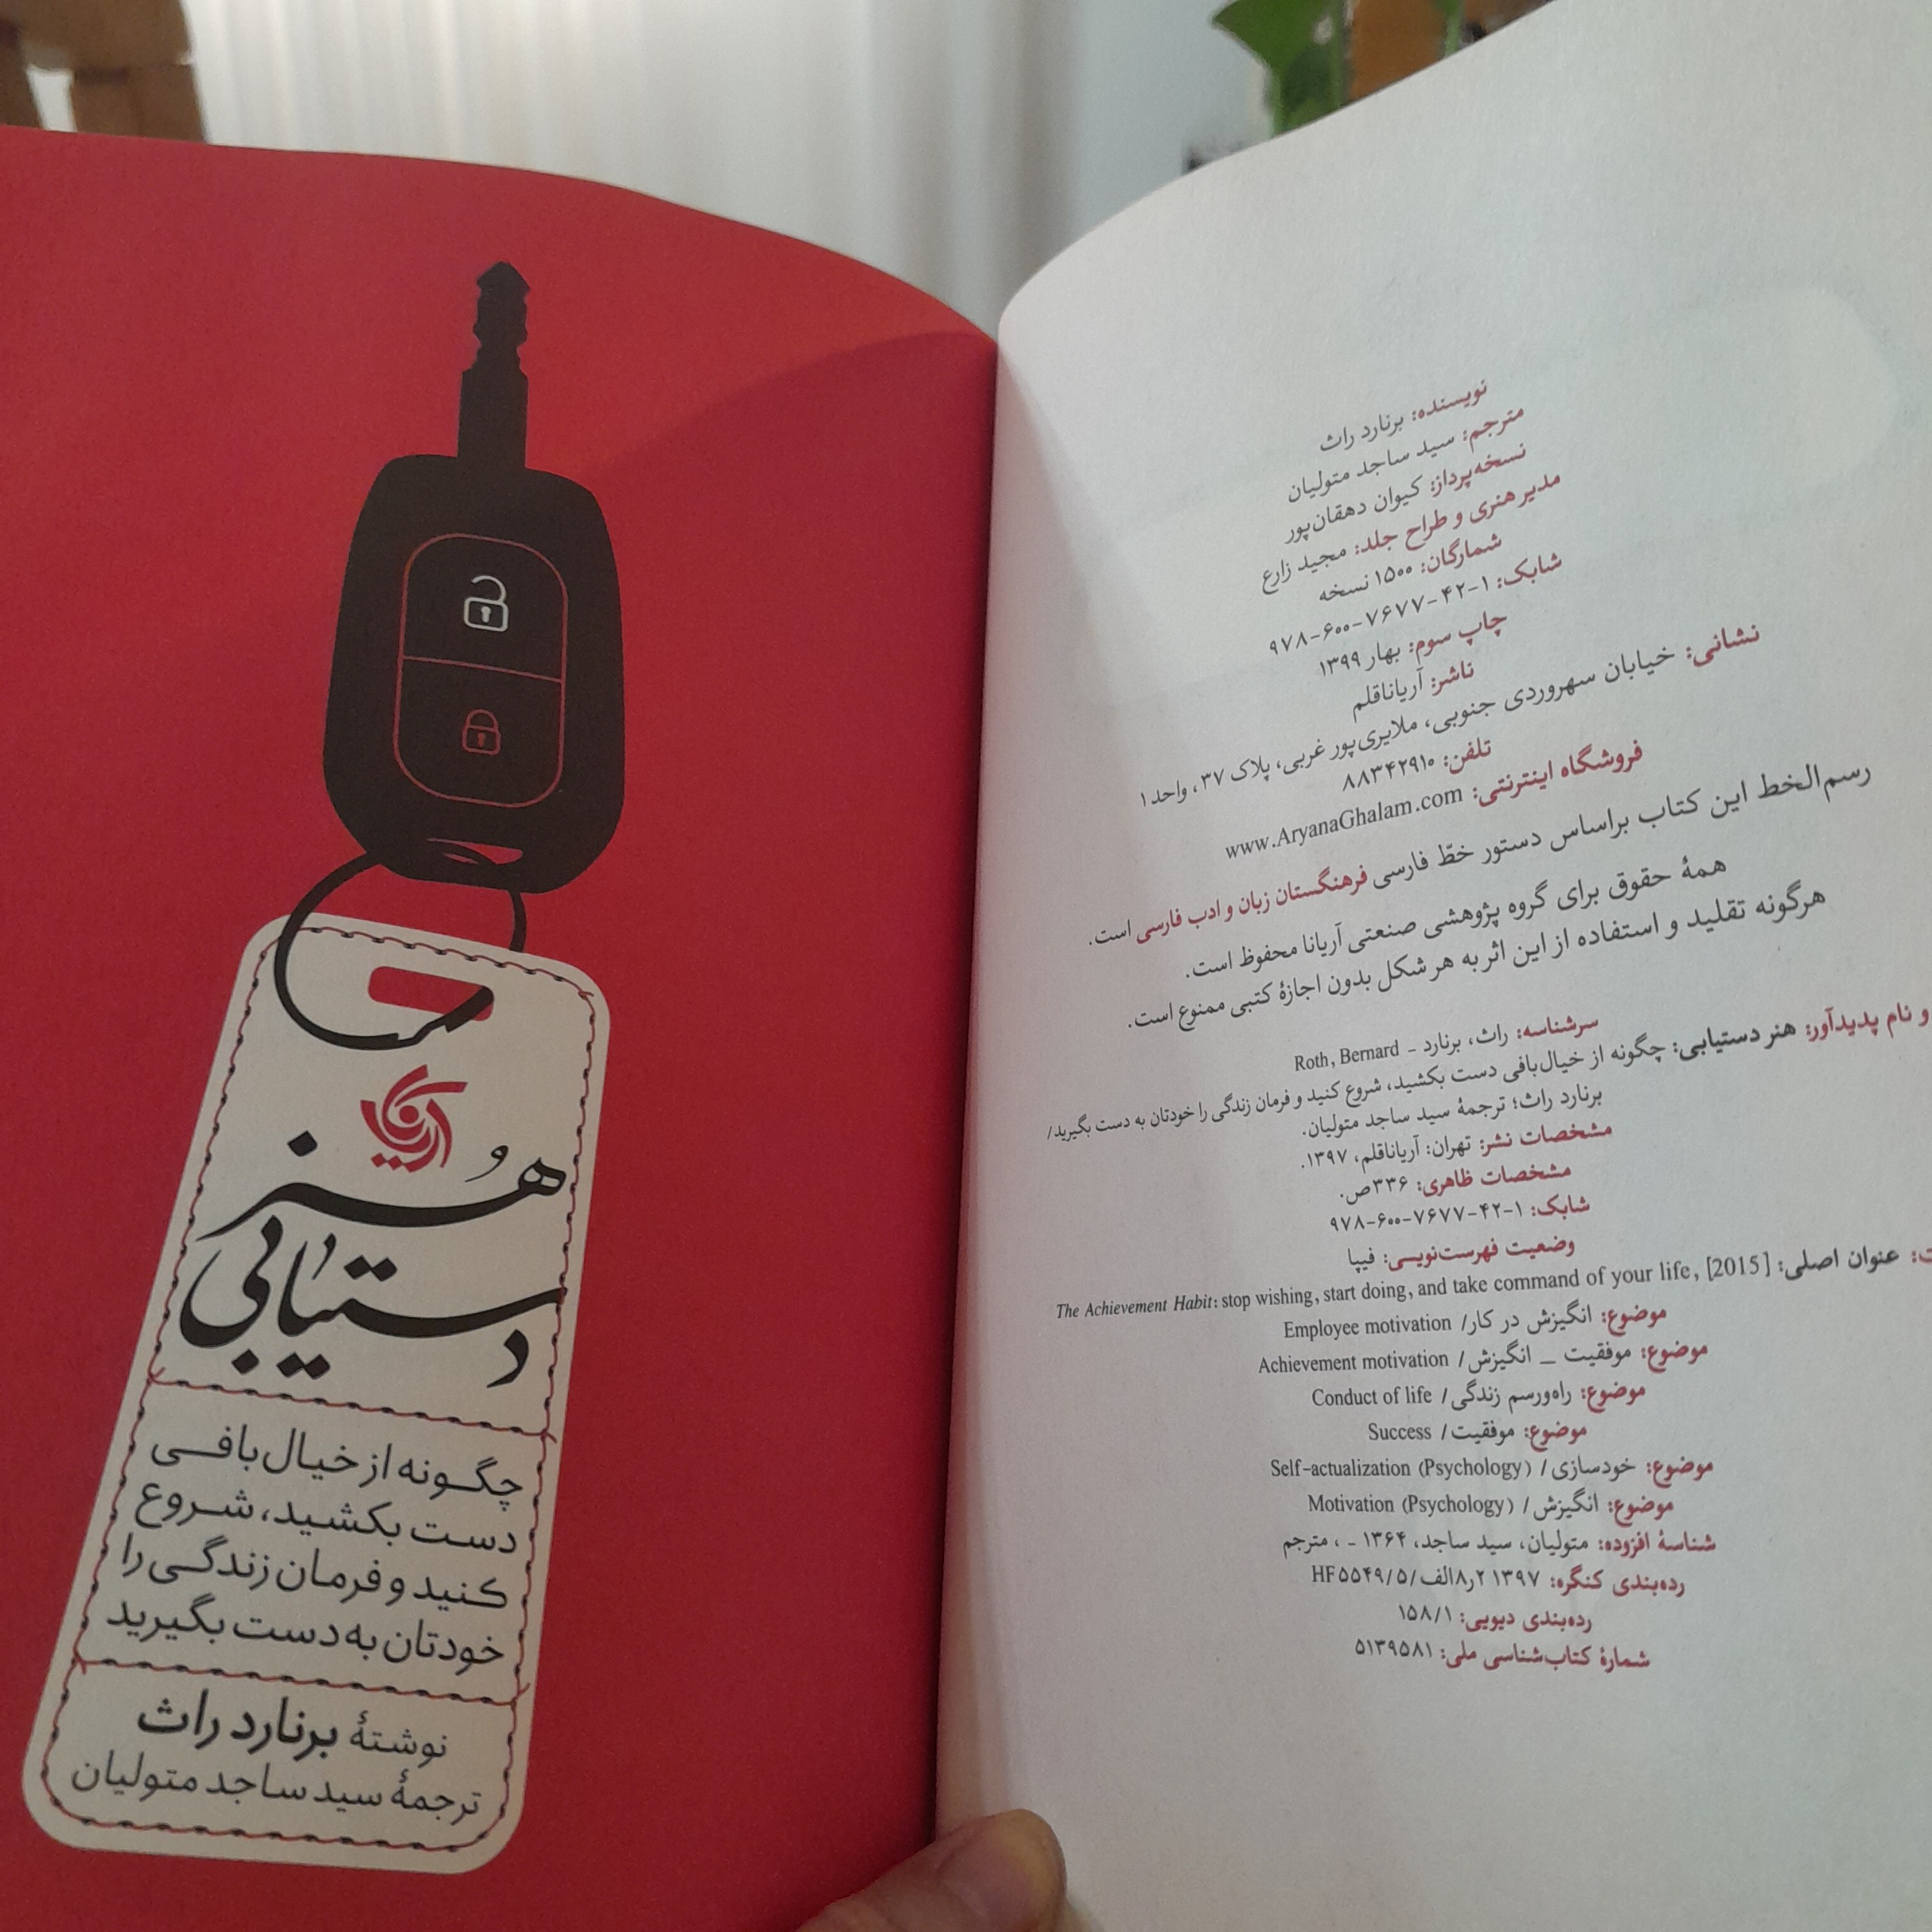 آریانا
هُنر
دستیابی
چگونه از خیال‌بافی
دست بکشید، شروع
کنید و فرمان زندگی را
خودتان به دست بگیرید
نوشتهٔ برنارد راث
ترجمهٔ سید ساجد متولیان
نویسنده: برنارد راث
مترجم: سید ساجد متولیان
نسخه‌پرداز: کیوان دهقان‌پور
مدیر هنری و طراح جلد: مجید زارع
شمارگان: ۱۵۰۰ نسخه
شابک: ۱-۴۲-۷۶۷۷-۶۰۰-۹۷۸
چاپ سوم: بهار ۱۳۹۹
ناشر: آریاناقلم
نشانی: خیابان سهروردی جنوبی، ملایری‌پور غربی، پلاک ۳۷، واحد ۱
تلفن: ۸۸۳۴۲۹۱۰
فروشگاه اینترنتی: www.AryanaGhalam.com
رسم‌الخط این کتاب براساس دستور خطّ فارسی فرهنگستان زبان و ادب فارسی است.
همهٔ حقوق برای گروه پژوهشی صنعتی آریانا محفوظ است.
هرگونه تقلید و استفاده از این اثر به هر شکل بدون اجازهٔ کتبی ممنوع است.
سرشناسه: راث، برنارد - Roth, Bernard
و نام پدیدآور: هنر دستیابی: چگونه از خیال‌بافی دست بکشید، شروع کنید و فرمان زندگی را خودتان به دست بگیرید/
برنارد راث؛ ترجمهٔ سید ساجد متولیان.
مشخصات نشر: تهران: آریاناقلم، ۱۳۹۷.
مشخصات ظاهری: ۳۳۶ص.
شابک: ۱-۴۲-۷۶۷۷-۶۰۰-۹۷۸
وضعیت فهرست‌نویسی: فیپا
عنوان اصلی: The Achievement Habit: stop wishing, start doing, and take command of your life, [2015]
موضوع: انگیزش در کار/ Employee motivation
موضوع: موفقیت _ انگیزش/ Achievement motivation
موضوع: راه‌ورسم زندگی/ Conduct of life
موضوع: موفقیت/ Success
موضوع: خودسازی/ Self-actualization (Psychology)
موضوع: انگیزش/ Motivation (Psychology)
شناسهٔ افزوده: متولیان، سید ساجد، ۱۳۶۴ - ، مترجم
رده‌بندی کنگره: ۱۳۹۷ ۲ر۸الف/HF۵۵۴۹/۵
رده‌بندی دیویی: ۱۵۸/۱
شمارهٔ کتاب‌شناسی ملی: ۵۱۳۹۵۸۱